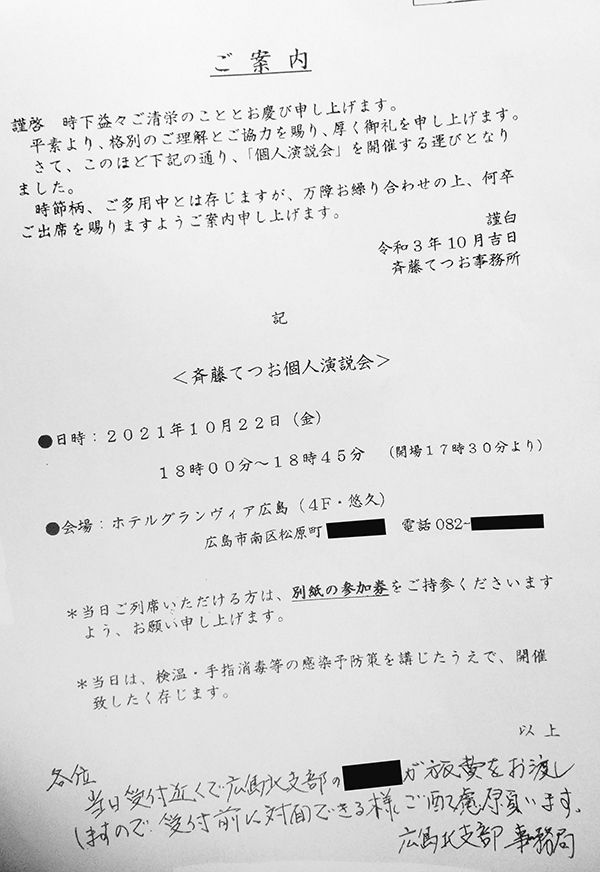 ご案内
謹啓 時下益々ご清栄のこととお慶び申し上げます。
平素より、格別のご理解とご協力を賜り、厚く御礼を申し上げます。
さて、このほど下記の通り、「個人演説会」を開催する運びとなり
ました。
時節柄、ご多用中とは存じますが、万障お繰り合わせの上、何卒
ご出席を賜りますようご案内申し上げます。
謹白
令和3年10月吉日
斉藤てつお事務所
記
＜斉藤てつお個人演説会＞
●日時：２０２１年１０月２２日（金）
１８時００分～１８時４５分 （開場１７時３０分より）
●会場：ホテルグランヴィア広島（４Ｆ・悠久）
広島市南区松原町 電話 082-
＊当日ご列席いただける方は、別紙の参加券をご持参くださいます
よう、お願い申し上げます。
＊当日は、検温・手指消毒等の感染予防策を講じたうえで、開催
致したく存じます。
以上
各位
当日受付近くで広島北支部の が旅費をお渡し
しますので受付前に対面できる様ご配慮願います。
広島北支部 事務局